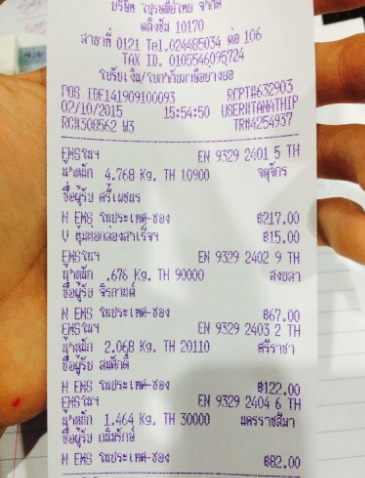 บริษัท ไปรษณีย์ไทย จำกัด
ตลิ่งชัน 10170
สาขาที่ 0121 Tel.024485034 ต่อ 106
TAX ID. 0105546095724
ใบรับเงิน/ใบกำกับภาษีอย่างย่อ
POS IDE141909100093 RCPT#632903
02/10/2015 15:54:50 USER#TANATHIP
RG#308562 W3 TR#4254937
EMSในฯ EN 9329 2401 5 TH
น้ำหนัก 4.768 Kg. TH 10900 จตุจักร
ชื่อผู้รับ
N EMS ในประเทศ-ซอง ฿217.00
V หุ้มห่อกล่องสำเร็จฯ ฿15.00
EMSในฯ EN 9329 2402 9 TH
น้ำหนัก .676 Kg. TH 90000 สงขลา
ชื่อผู้รับ จิรกานต์
N EMS ในประเทศ-ซอง ฿67.00
EMSในฯ EN 9329 2403 2 TH
น้ำหนัก 2.068 Kg. TH 20110 ศรีราชา
ชื่อผู้รับ สมศักดิ์
N EMS ในประเทศ-ซอง ฿122.00
EMSในฯ EN 9329 2404 6 TH
น้ำหนัก 1.464 Kg. TH 30000 นครราชสีมา
ชื่อผู้รับ
N EMS ในประเทศ-ซอง ฿82.00